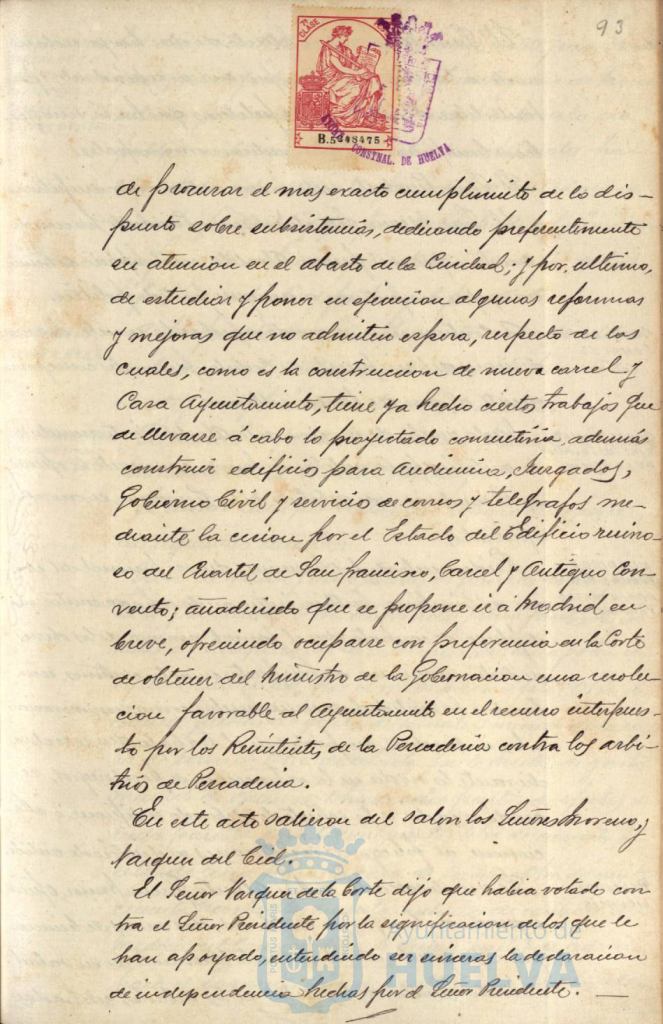 93
7ª CLASE
B.5,248475
CONSTNAL. DE HUELVA
de procurar el mas exacto cumplimiento de lo dis-
puesto sobre subsistencias, dedicando preferentemente
su atencion en el abasto de la Ciudad; y por ultimo,
de estudiar y poner en ejecucion algunas reformas
y mejoras que no admiten espera, respecto de las
cuales, como es la construccion de nueva carcel y
Casa Ayuntamiento, tiene ya hecho ciertos trabajos que
de llevarse á cabo lo proyectado consentiria, además
construir edificio para Audiencia, Juzgados,
Gobierno Civil y servicio de correos y telégrafos me-
diante la cesion por el Estado del Edificio ruino-
so del Cuartel de San francisco, Carcel y Antiguo Con-
vento; añadiendo que se propone ir á Madrid en
breve, ofreciendo ocuparse con preferencia en la Corte
de obtener del Ministro de la Gobernacion una resolu-
cion favorable al Ayuntamiento en el recurso interpues-
to por los Remitentes de la Pescaderia contra los arbi-
trios de Pescaderia.
En este acto salieron del salon los Señores Moreno, y
Vazquez del Cid.
El Señor Vazquez de la Corte dijo que habia votado con-
tra el Señor Presidente por la significacion de los que le
han apoyado, entendiendo ser sinceras la declaracion
de independencia hechas por el Señor Presidente.
Ayuntamiento de
HUELVA